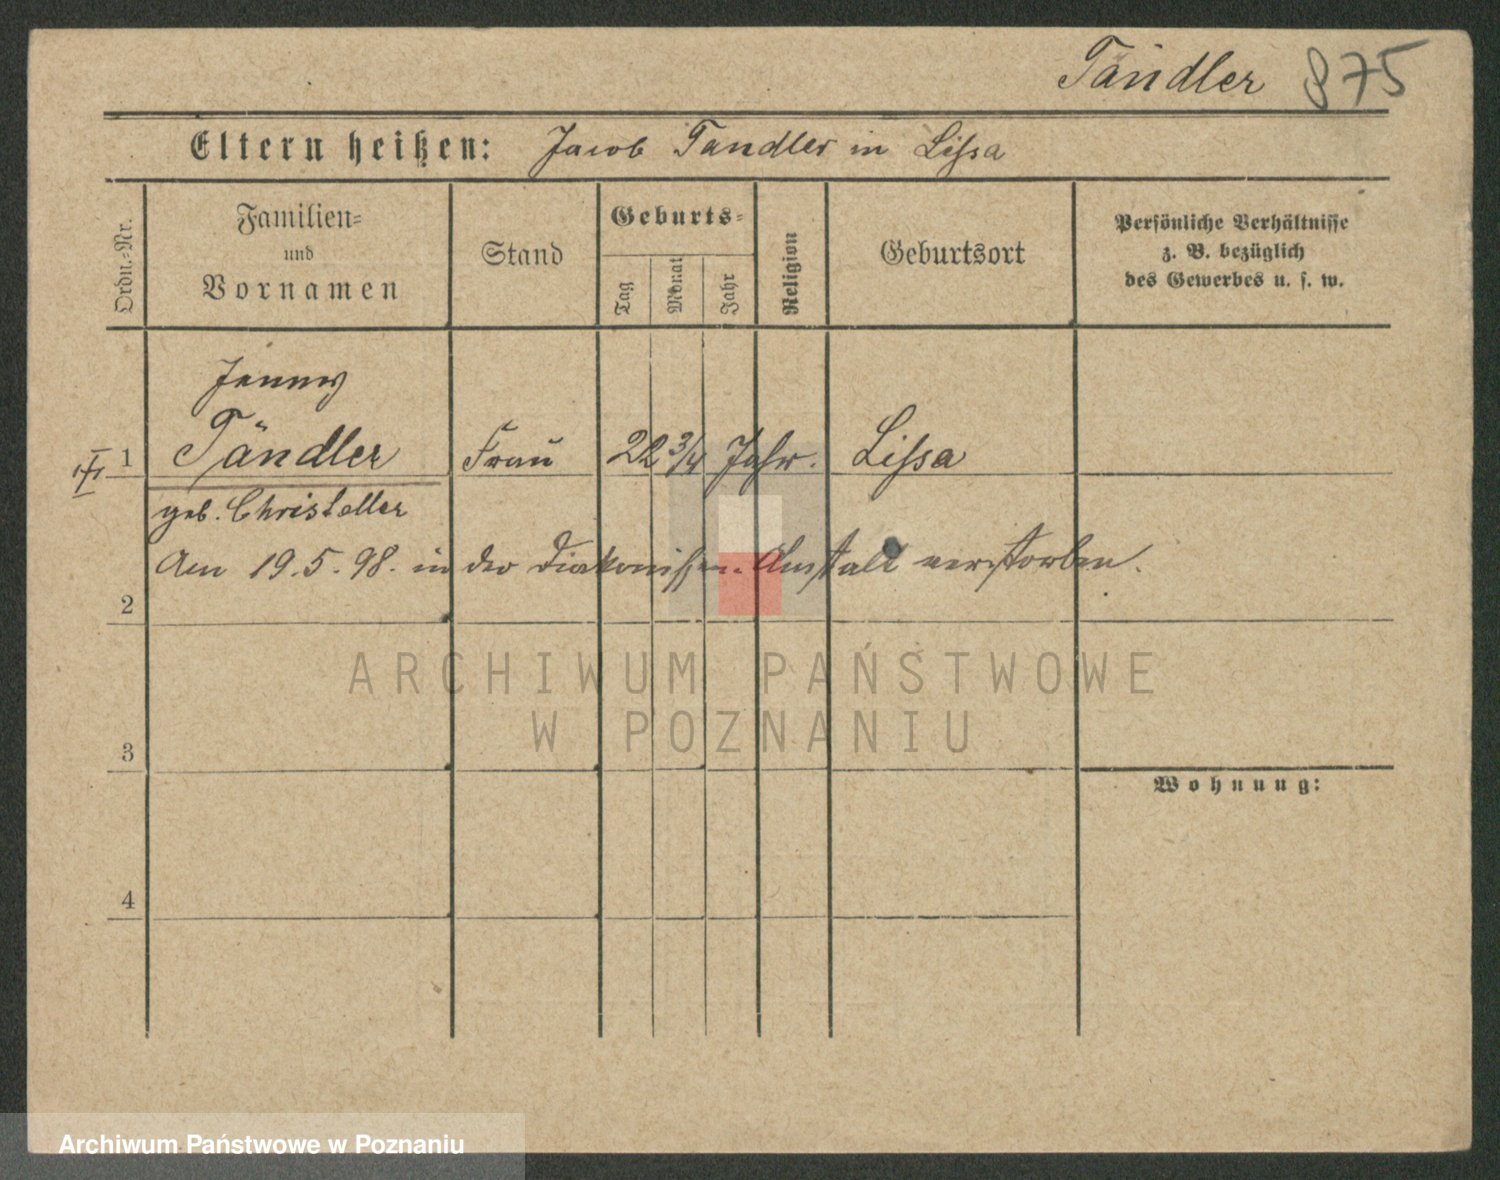 Tändler 875
Eltern heißen: Jacob Tändler in Lissa
Ordn.-Nr.
Familien-
und
Vornamen
Stand
Geburts-
Tag
Monat
Jahr
Religion
Geburtsort
Persönliche Verhältnisse
z. B. bezüglich
des Gewerbes u. s. w.
Jenny
1 Tändler Frau 22 3/4 Jahr. Lissa
geb. Christeller
Am 19.5.98. in der Diakonissen-Anstalt verstorben.
2
3
Wohnung:
4
ARCHIWUM PAŃSTWOWE
W POZNANIU
Archiwum Państwowe w Poznaniu